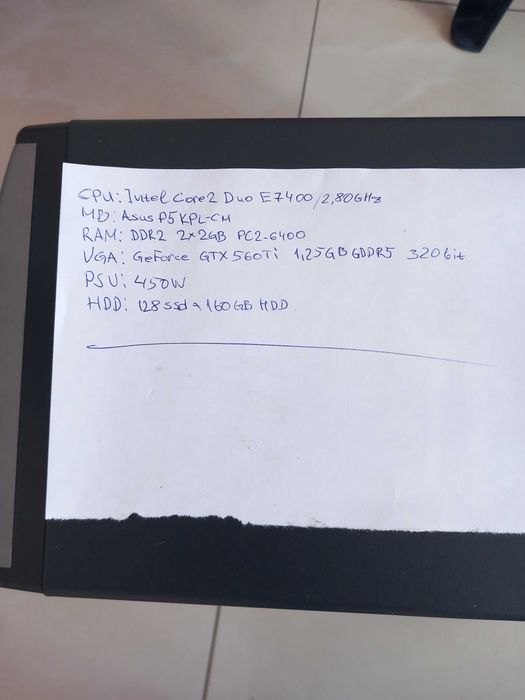 CPU: Intel Core2 Duo E7400/2,80GHz
MB: Asus P5KPL-CM
RAM: DDR2 2x2GB PC2-6400
VGA: GeForce GTX560Ti 1,25GB GDDR5 320bit
PSU: 450W
HDD: 128 ssd a 160GB HDD